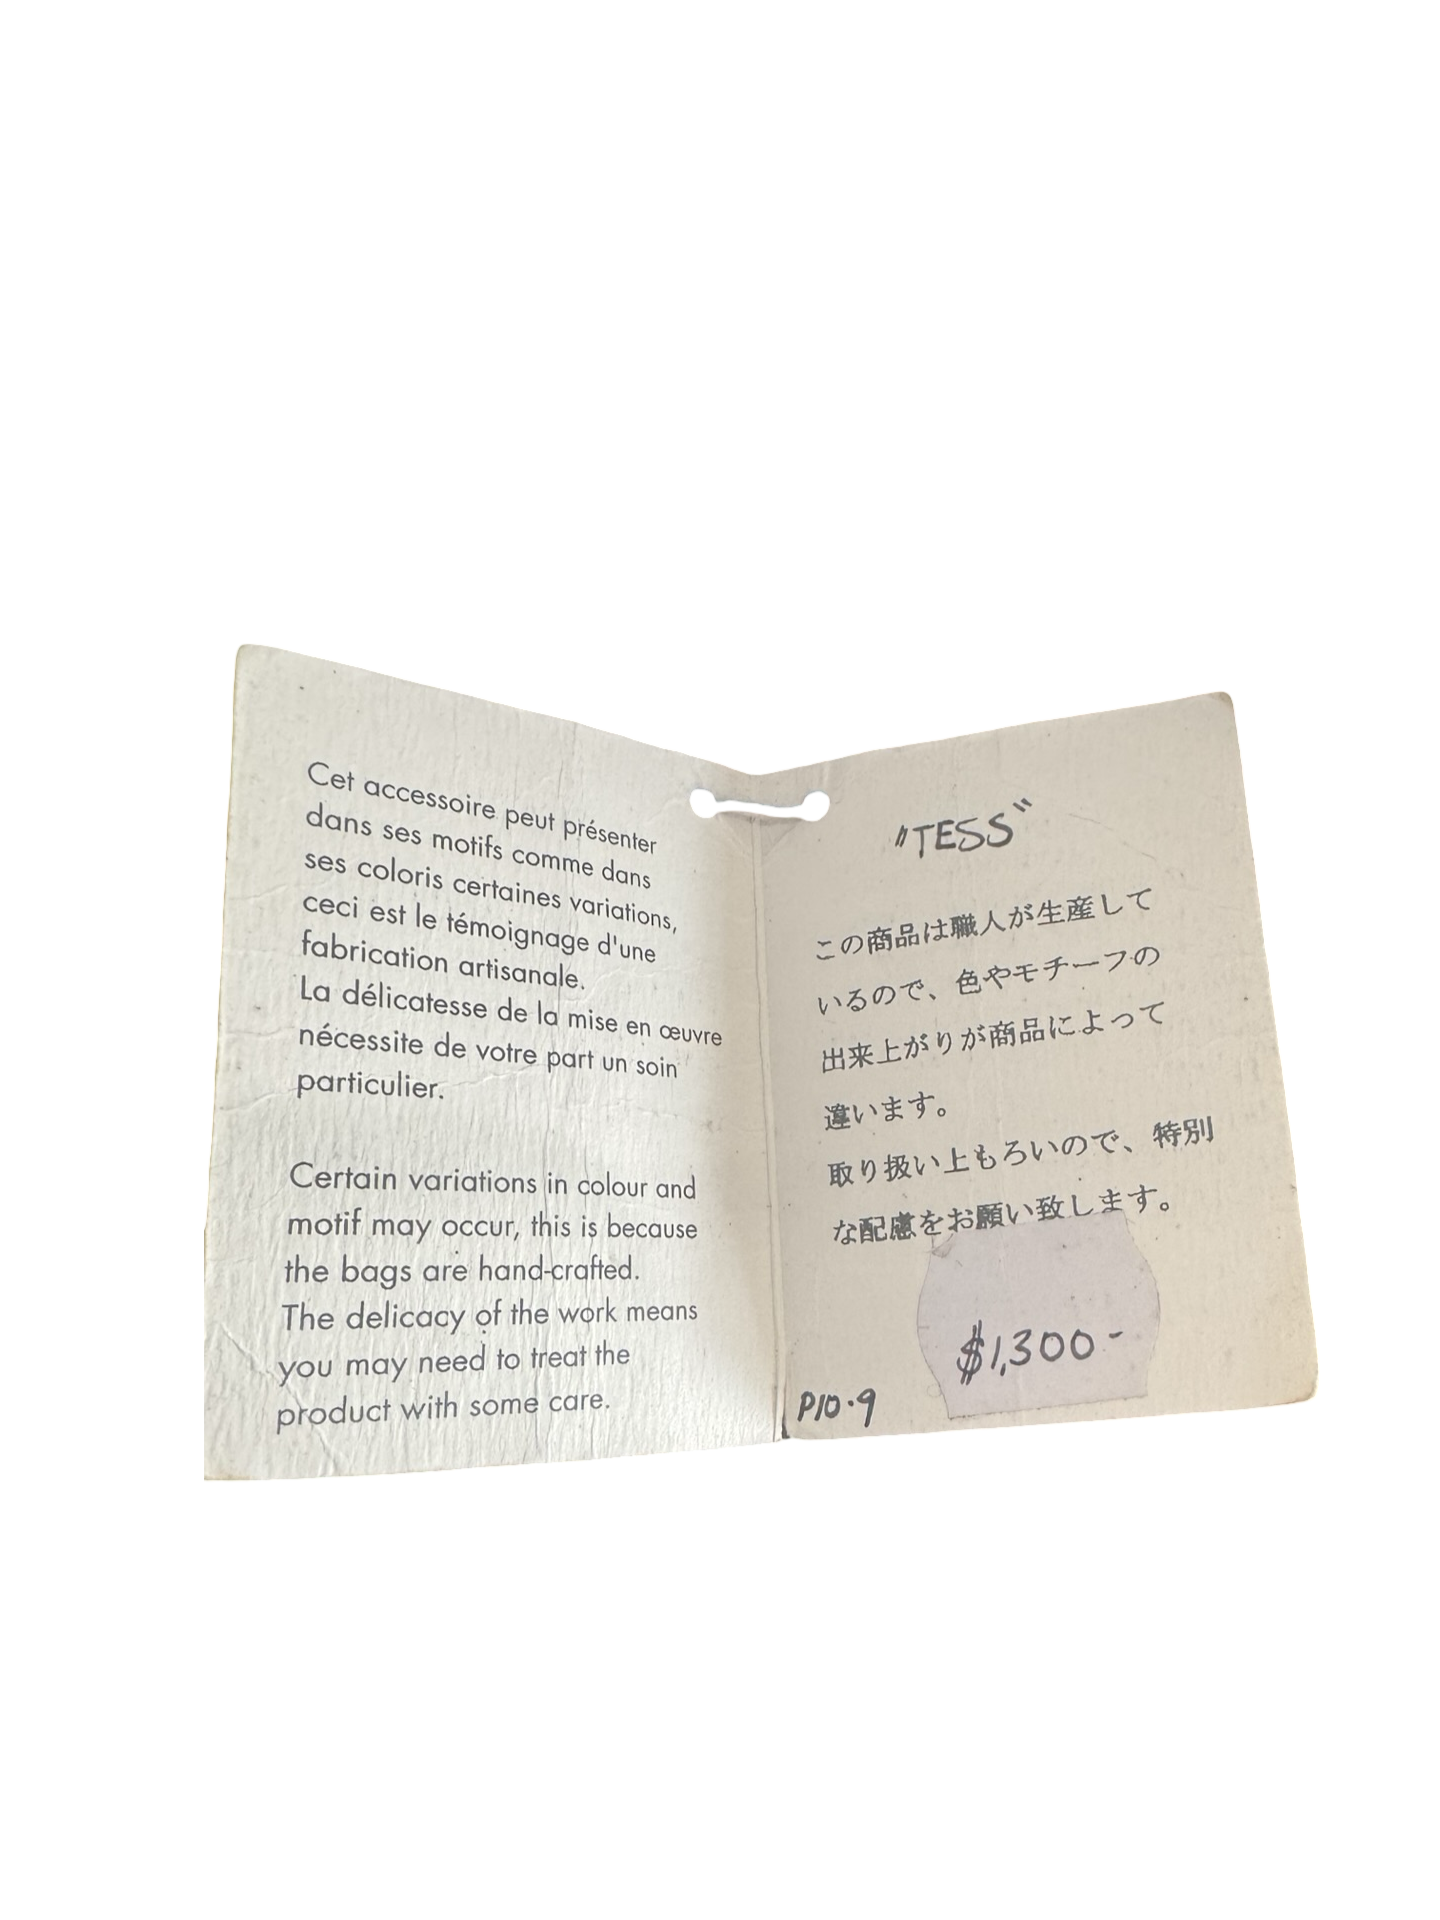 Cet accessoire peut présenter
dans ses motifs comme dans
ses coloris certaines variations,
ceci est le témoignage d'une
fabrication artisanale.
La délicatesse de la mise en œuvre
nécessite de votre part un soin
particulier.
Certain variations in colour and
motif may occur, this is because
the bags are hand-crafted.
The delicacy of the work means
you may need to treat the
product with some care.
"TESS"
この商品は職人が生産して
いるので、色やモチーフの
出来上がりが商品によって
違います。
取り扱い上もろいので、特別
な配慮をお願い致します。
$1,300-
P10.9